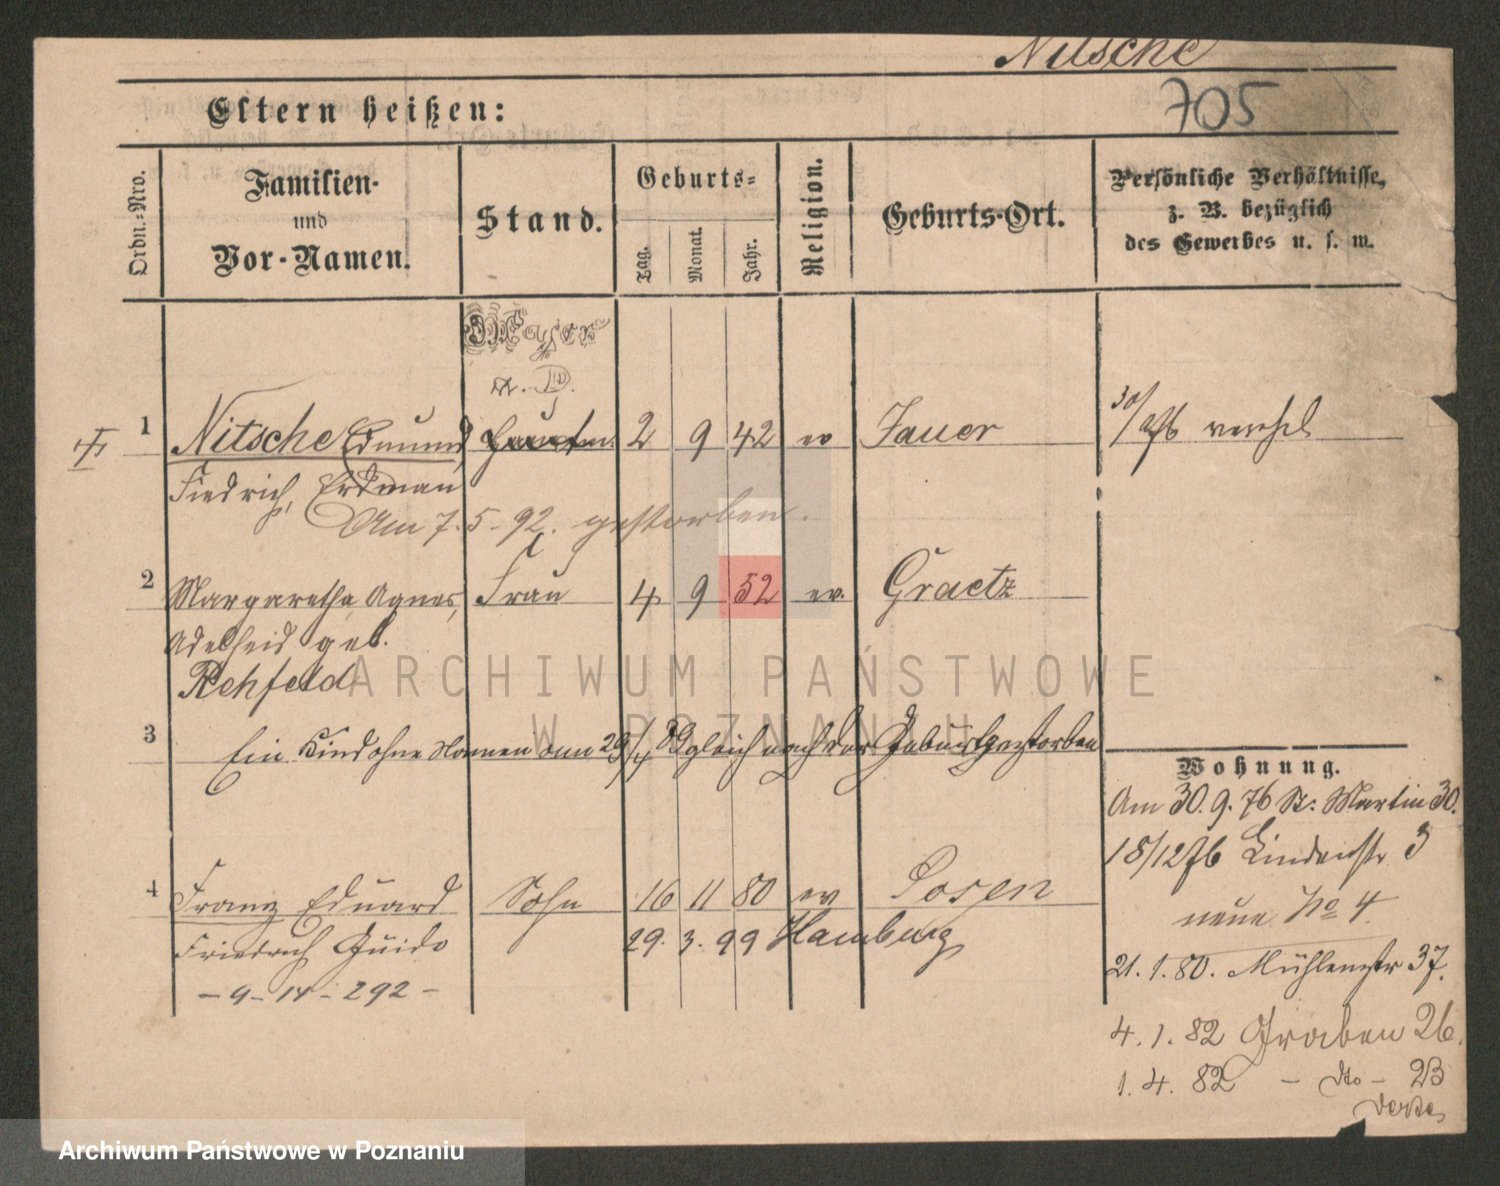 Nitsche
705
Eltern heißen:
Ordn.=Nro.
Familien-
und
Vor-Namen.
Stand.
Geburts=
Tag.
Monat.
Jahr.
Religion.
Geburts-Ort.
Persönliche Verhältnisse,
z. B. bezüglich
des Gewerbes u. s. w.
Major
a. D.
1 Nitsche Edmund Hauptm. 2 9 42 ev Jauer 30/9 76
Friedrich, Erdman
Am 7.5-92. gestorben.
2 Margaretha Agnes, Frau 4 9 52 ev. Graetz
Adelheid geb.
Rehfeld
3 Ein Kind ohne Namen am 29/4 89 gleich nach der Geburt gestorben
4 Franz Eduard Sohn 16 11 80 ev Posen
Friedrich Guido 29. 3. 99 Hamburg
- 9 - 14 - 292 -
Wohnung.
Am 30. 9. 76 St. Martin 30.
18/12 76 Lindenstr 3
neue No 4.
21. 1. 80. Mühlenstr 37.
4. 1. 82 Graben 26.
1. 4. 82 - dto - 2B
ARCHIWUM PAŃSTWOWE
W POZNANIU
Archiwum Państwowe w Poznaniu